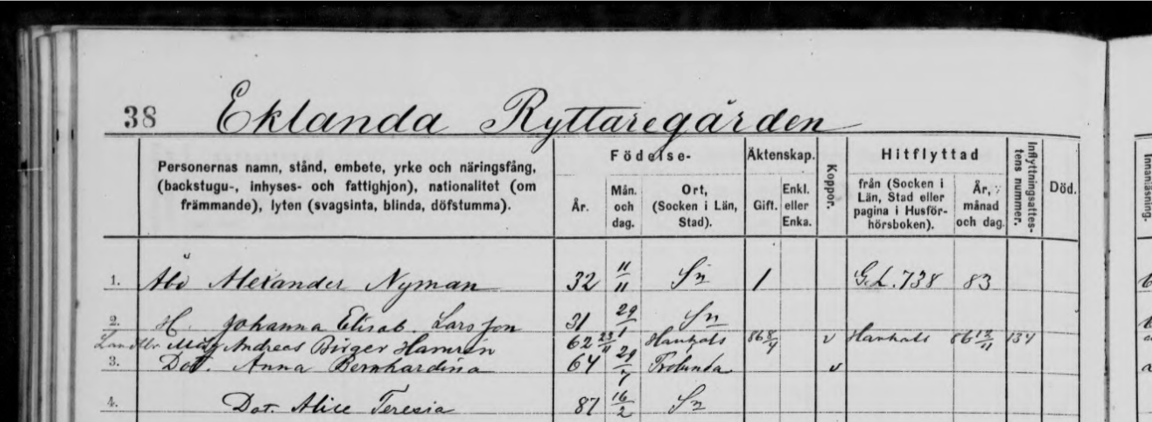 38 Eklanda Ryttaregården
Personernas namn, stånd, embete, yrke och näringsfång, (backstugu-, inhyses- och fattighjon), nationalitet (om främmande), lyten (svagsinta, blinda, döfstumma).
Födelse-
År.
Mån. och dag.
Ort, (Socken i Län, Stad).
Äktenskap.
Gift.
Enkl. eller Enka.
Koppor.
Hitflyttad
från (Socken i Län, Stad eller pagina i Husförhörsboken).
År, månad och dag.
Inflyttningsattestens nummer.
Död.
Innanläsning.
1. Åbo Alexander Nyman 32 11/11 Sn 1 G.L. 738 83
2. H. Johanna Elisab. Larsson 31 29/1 Sn
Andreas Birger Hamrin 62 Hanhals 86 8/4 v Hanhals 86 134
3. Dot. Anna Bernhardina 64 29/7 v
4. Dot. Alice Teresia 87 16/2 Sn